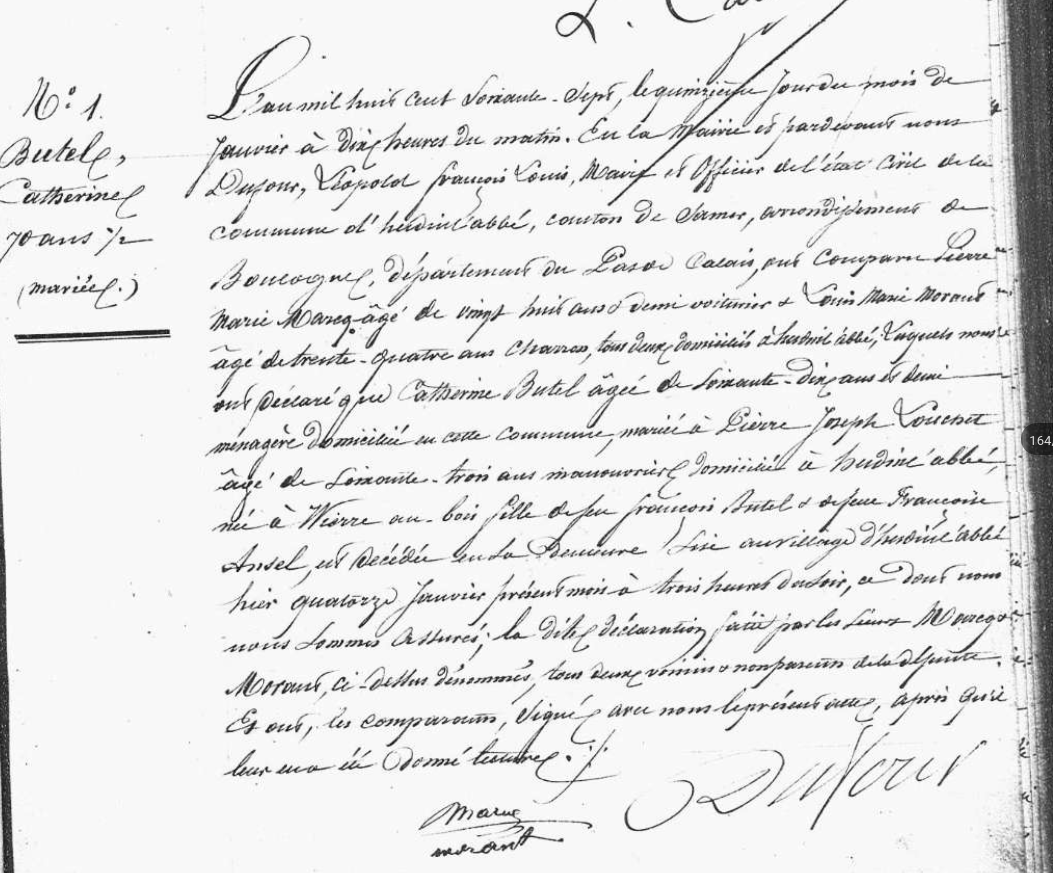 N.° 1.
Butel,
Catherine
70 ans 1/2
(mariée.)
L'an mil huit cent Soixante-Sept, le quinzième Jour du mois de
Janvier à dix heures du matin. En la Mairie et pardevant nous
Dufour, Léopold François Louis, Maire et Officier de l'état Civil de la
commune d'hesdin l'abbé, canton de Samer, arrondissement de
Boulogne, département du Pas de Calais, ont Comparu Pierre
Marie Marcq âgé de vingt huit ans & demi voiturier & Louis Marie Morant
âgé de trente-quatre ans Charron, tous deux domiciliés à hesdin l'abbé, Lesquels nous
ont déclaré que Catherine Butel âgée de Soixante-dix ans et demi
ménagère domiciliée en cette Commune, mariée à Pierre Joseph Louchet
âgé de Soixante-trois ans manouvrier domicilié à hesdin l'abbé,
née à Wierre au-bois fille de feu François Butel & de feue Françoise
Ansel, est décédée en sa Demeure Sise au village d'hesdin l'abbé
hier quatorze Janvier présent mois à trois heures du soir, ce dont nous
nous Sommes Assurés; la dite déclaration faite par les Sieurs Marcq &
Morant, ci-dessus dénommés, tous deux voisins & non parents de la défunte.
Et ont, les comparants, Signé avec nous le présent acte, après qu'il
leur en a été donné lecture ./.
Marcq
morant
Dufour
164